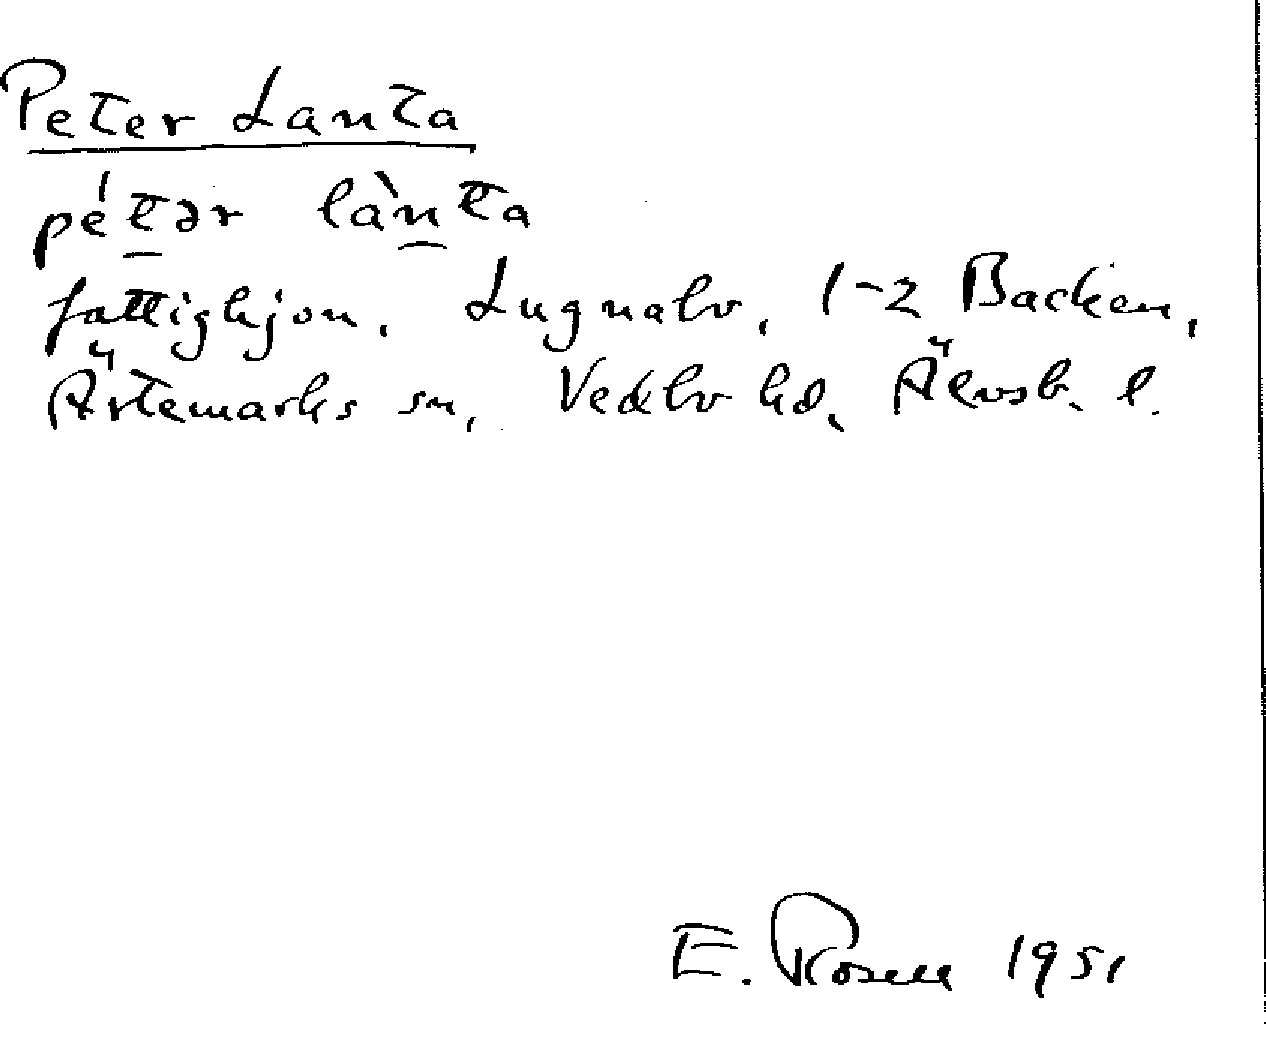 Peter Lanta
pétər lànta
fattighjon. Lugnalv, 1-2 Backen,
Ärtemarks sn, Vedbo hd, Älvsb. l.
E. Rosell 1951